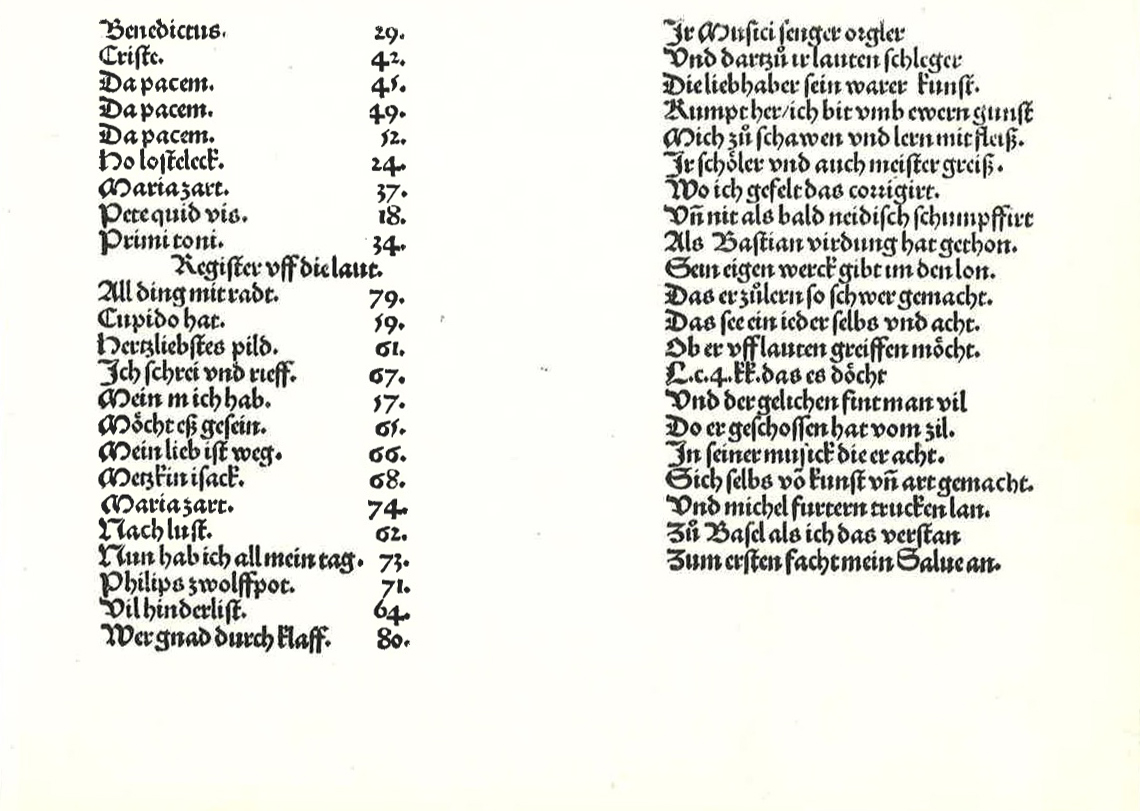 Benedictus. 29.
Criste. 42.
Da pacem. 45.
Da pacem. 49.
Da pacem. 52.
Ho losteleck. 24.
Maria zart. 37.
Pete quid vis. 18.
Primi toni. 34.
Register vff die laut.
All ding mit radt. 79.
Cupido hat. 59.
Hertzliebstes pild. 61.
Ich schrei vnd rieff. 67.
Mein m ich hab. 57.
Möcht eß gesein. 65.
Mein lieb ist weg. 66.
Metzkin isack. 68.
Maria zart. 74.
Nach lust. 62.
Nun hab ich all mein tag. 73.
Philips zwolffpot. 71.
Vil hinderlist. 64.
Wer gnad durch klaff. 80.
Ir Musici senger orgler
Vnd dartzů ir lauten schleger
Die liebhaber sein warer kunst.
Kumpt her/ich bit vmb ewern gunst
Mich zů schawen vnd lern mit fleiß.
Ir schöler vnd auch meister greiß.
Wo ich gefelt das corrigirt.
Vñ nit als bald neidisch schumpffirt
Als Bastian virdung hat gethon.
Sein eigen werck gibt im den lon.
Das er zůlern so schwer gemacht.
Das see ein ieder selbs vnd acht.
Ob er vff lauten greiffen möcht.
L.c.4.kk.das es döcht
Vnd der gelichen fint man vil
Do er geschossen hat vom zil.
In seiner musick die er acht.
Sich selbs võ kunst vñ art gemacht.
Vnd michel furtern trucken lan.
Zů Basel als ich das verstan
Zum ersten facht mein Salue an.